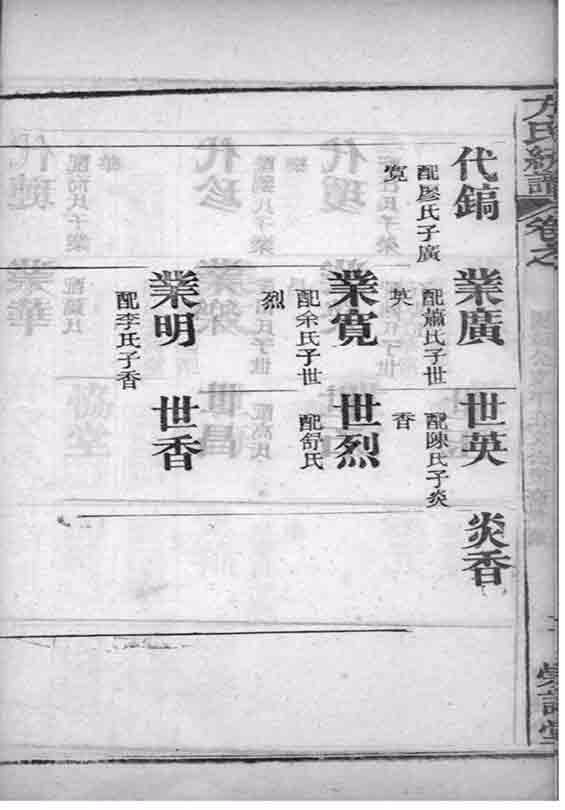 方氏統譜 卷之
代鎬
配廖氏子廣
寬
業廣
配蕭氏子世
英
業寬
配余氏子世
烈
業明
配李氏子香
世英
配陳氏子炎
香
世烈
配舒氏
世香
炎香